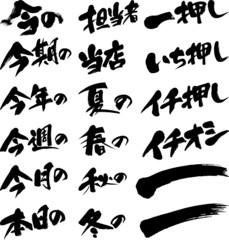 今の
今期の
今年の
今週の
今月の
本日の
担当者
当店
夏の
春の
秋の
冬の
一押し
いち押し
イチ押し
イチオシ